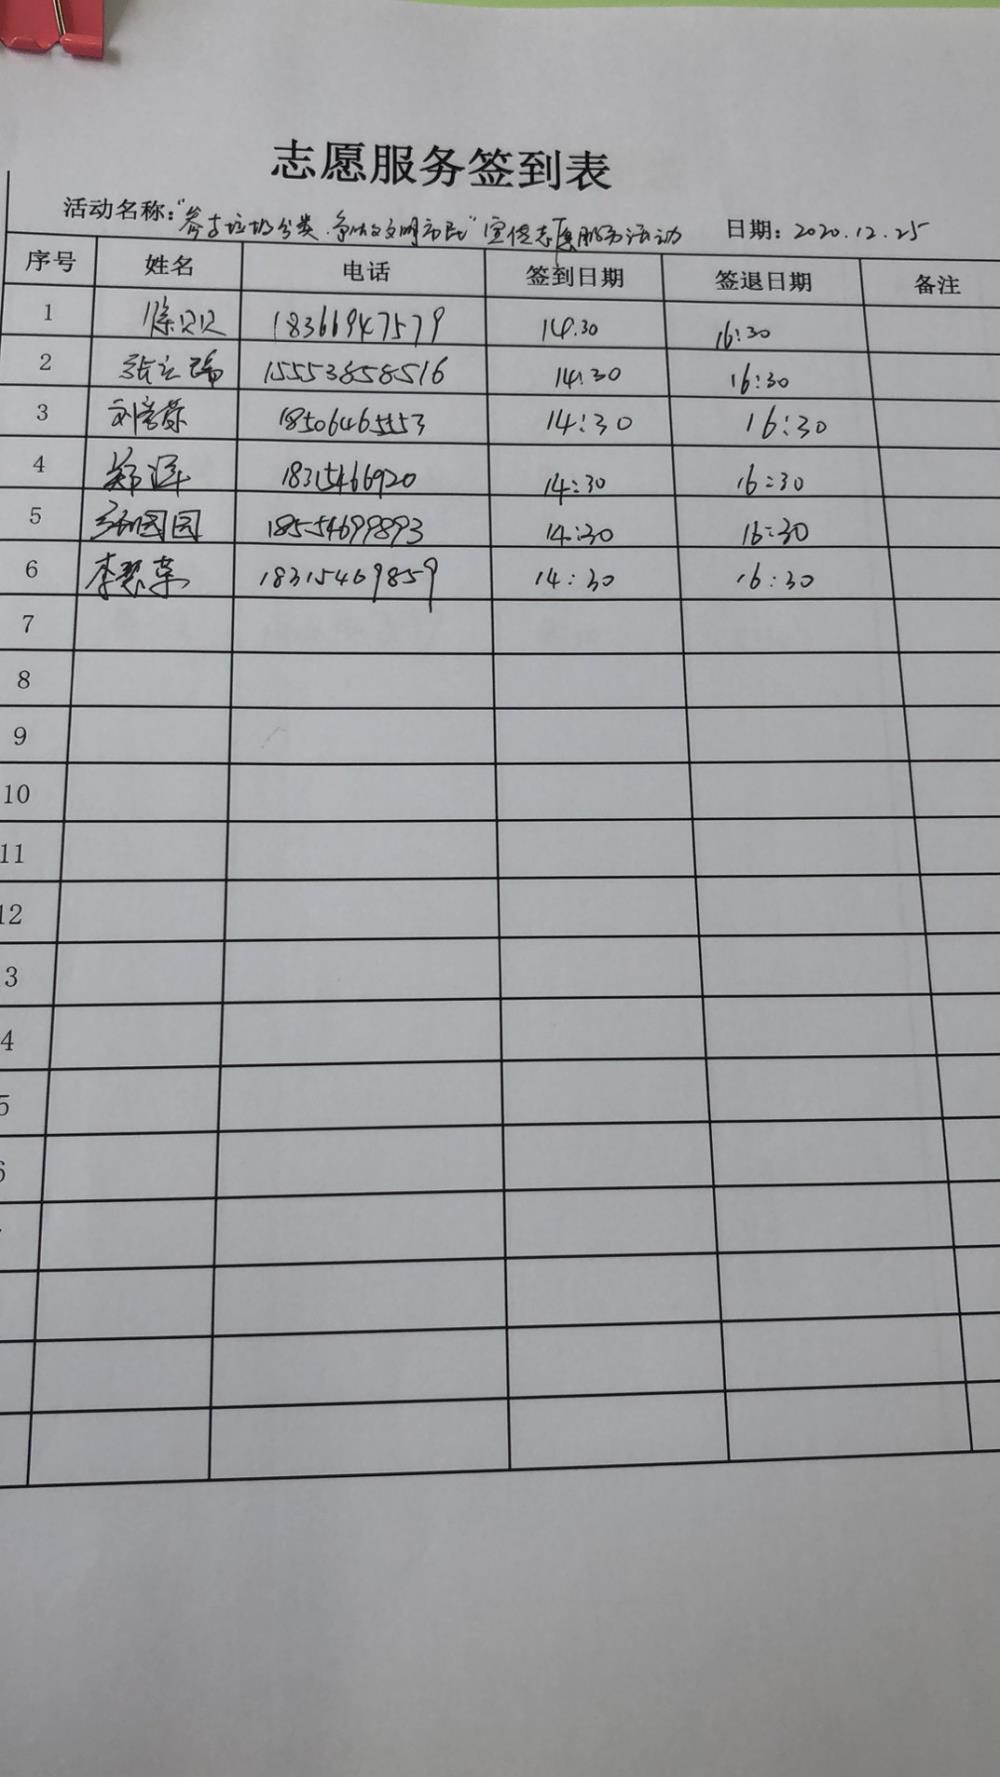 志愿服务签到表
活动名称："参与垃圾分类.争做文明市民"宣传志愿服务活动 日期：2020.12.25
序号 姓名 电话 签到日期 签退日期 备注
1 滕贝贝 18366947579 14.30 16:30
2 张立瑞 15553858516 14:30 16:30
3 刘 18506465553 14:30 16:30
4 郑洋 18315466920 14:30 16:30
5 园园 18554699893 14:30 16:30
6 李翠苹 18315469859 14:30 16:30
7
8
9
10
11
12
3
4
5
6